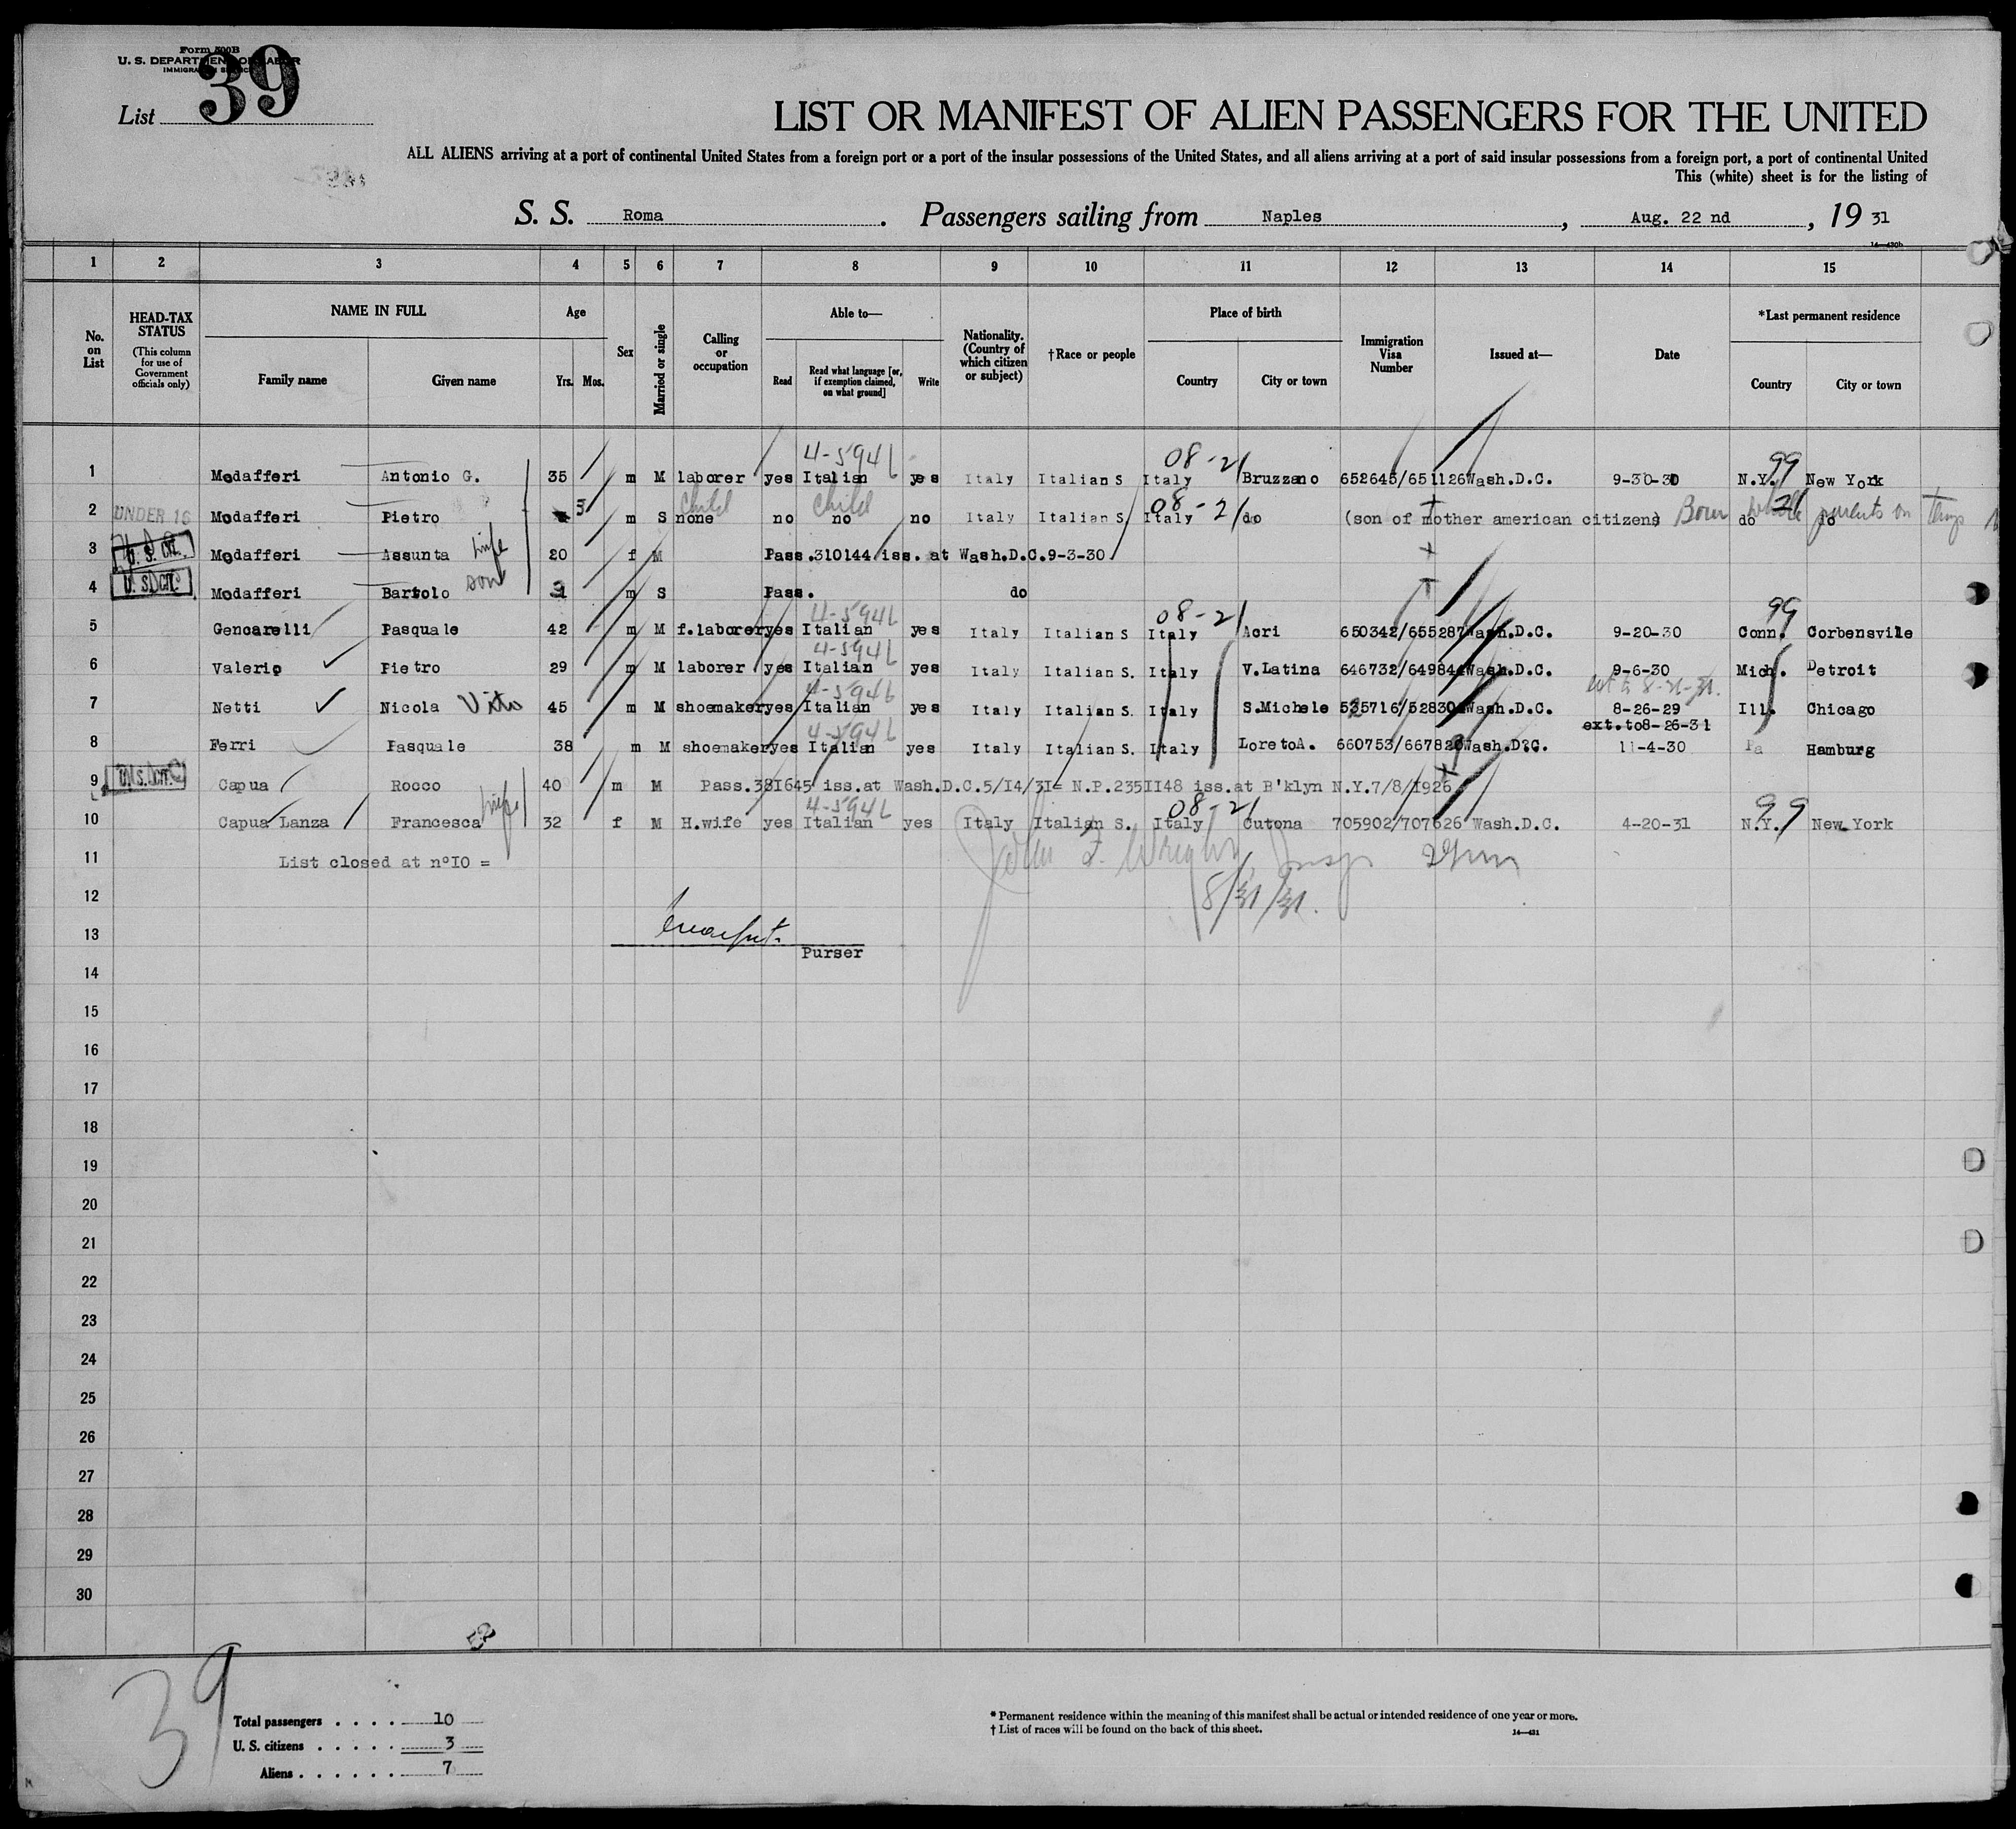 Form 500B
U. S. DEPARTMENT OF LABOR
IMMIGRATION SERVICE
List 39
LIST OR MANIFEST OF ALIEN PASSENGERS FOR THE UNITED
ALL ALIENS arriving at a port of continental United States from a foreign port or a port of the insular possessions of the United States, and all aliens arriving at a port of said insular possessions from a foreign port, a port of continental United
This (white) sheet is for the listing of
S. S. Roma. Passengers sailing from Naples, Aug. 22 nd, 19 31
14—430b
1 2 3 4 5 6 7 8 9 10 11 12 13 14 15
No. on List
HEAD-TAX STATUS (This column for use of Government officials only)
NAME IN FULL Family name Given name
Age Yrs. Mos.
Sex
Married or single
Calling or occupation
Able to— Read Read what language [or, if exemption claimed, on what ground] Write
Nationality. (Country of which citizen or subject)
†Race or people
Place of birth Country City or town
Immigration Visa Number
Issued at—
Date
*Last permanent residence Country City or town
4-5946 08-21 99
1 Modafferi Antonio G. 35 m M laborer yes Italian yes Italy Italian S Italy Bruzzano 652645/651126 Wash.D.C. 9-30-30 N.Y. New York
child child 08-21
2 UNDER 16 Modafferi Pietro 3 m S none no no no Italy Italian S. Italy do (son of mother american citizen) Born while parents on Temp do do
3 U.S. CIT. Modafferi Assunta wife 20 f M Pass.310144 iss. at Wash.D.C.9-3-30
4 U.S. CIT. Modafferi Bartolo son m S Pass. do
4-5946 08-21 99
5 Gencarelli Pasquale 42 m M f.laborer yes Italian yes Italy Italian S Italy Acri 650342/655287 Wash.D.C. 9-20-30 Conn. Corbensvile
4-5946
6 Valerio Pietro 29 m M laborer yes Italian yes Italy Italian S. Italy V.Latina 646732/649844 Wash.D.C. 9-6-30 Mich. Detroit
4-5946 ext to 8-26-31.
7 Netti Nicola Vito 45 m M shoemaker yes Italian yes Italy Italian S. Italy S.Michele 525716/528304 Wash.D.C. 8-26-29 Ill. Chicago
4-5946 ext.to8-26-31
8 Ferri Pasquale 38 m M shoemaker yes Italian yes Italy Italian S. Italy LoretoA. 660753/667828 Wash.D.C. 11-4-30 Pa Hamburg
9 U.S. CIT. Capua Rocco 40 m M Pass.381645 iss.at Wash.D.C.5/14/31= N.P.2351148 iss.at B'klyn N.Y.7/8/1926
4-5946 08-21 99
10 Capua Lanza Francesca wife 32 f M H.wife yes Italian yes Italy Italian S. Italy Cutona 705902/707626 Wash.D.C. 4-20-31 N.Y. New York
11 List closed at n°10 = John F. Wright Insp
12 8/31/31.
13
Purser
14
15
16
17
18
19
20
21
22
23
24
25
26
27
28
29
30
39
Total passengers . . . . 10
U. S. citizens . . . . . 3
Aliens . . . . . . 7
* Permanent residence within the meaning of this manifest shall be actual or intended residence of one year or more.
† List of races will be found on the back of this sheet.
14—431